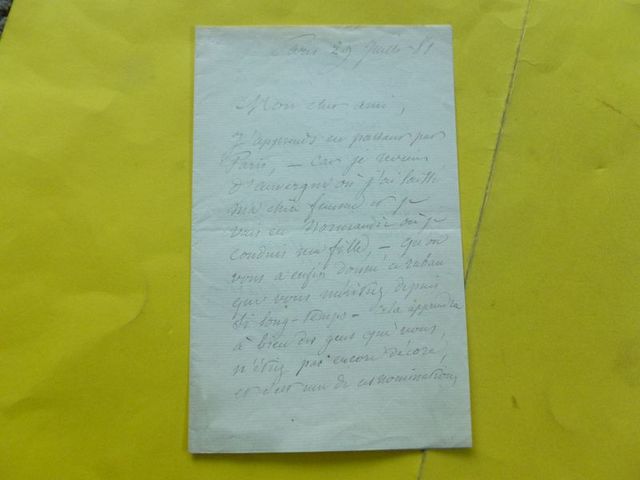 Paris 29 juillet 81
Mon cher ami,
J'apprends en passant par
Paris, – car je reviens
d'auvergne où j'ai laissé
ma chère femme et je
vais en Normandie où je
conduis ma fille, – qu'on
vous a enfin donné ce ruban
que vous méritez depuis
si long-temps – Cela apprendra
à bien des gens que vous
n'étiez pas encore décoré,
et c'est une de ces nominations